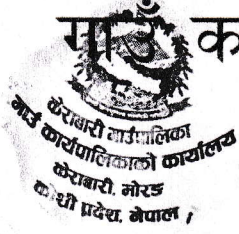 गाउँ क
केराबारी गाउँपालिका
गाउँ कार्यपालिकाको कार्यालय
केराबारी, मोरङ
कोशी प्रदेश, नेपाल ।